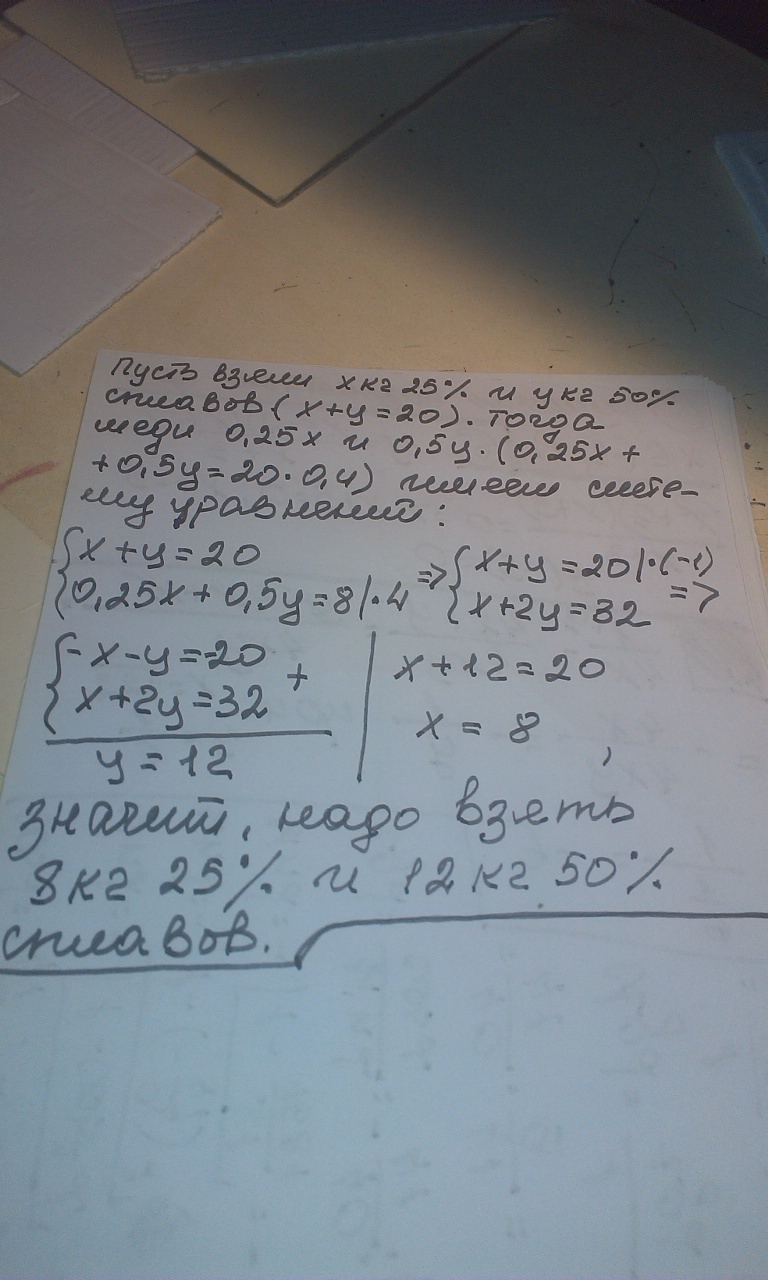 Пусть взяли х кг 25% и у кг 50%
сплавов (х+у=20). Тогда
меди 0,25х и 0,5у. (0,25х+
+0,5у=20·0,4) имеем систе-
му уравнений:
{х+у=20
{0,25х+0,5у=8|·4
=> {х+у=20|·(-1)
{х+2у=32 =>
{-х-у=-20
{х+2у=32 +
у=12
х+12=20
х = 8,
значит, надо взять
8кг 25% и 12кг 50%
сплавов.